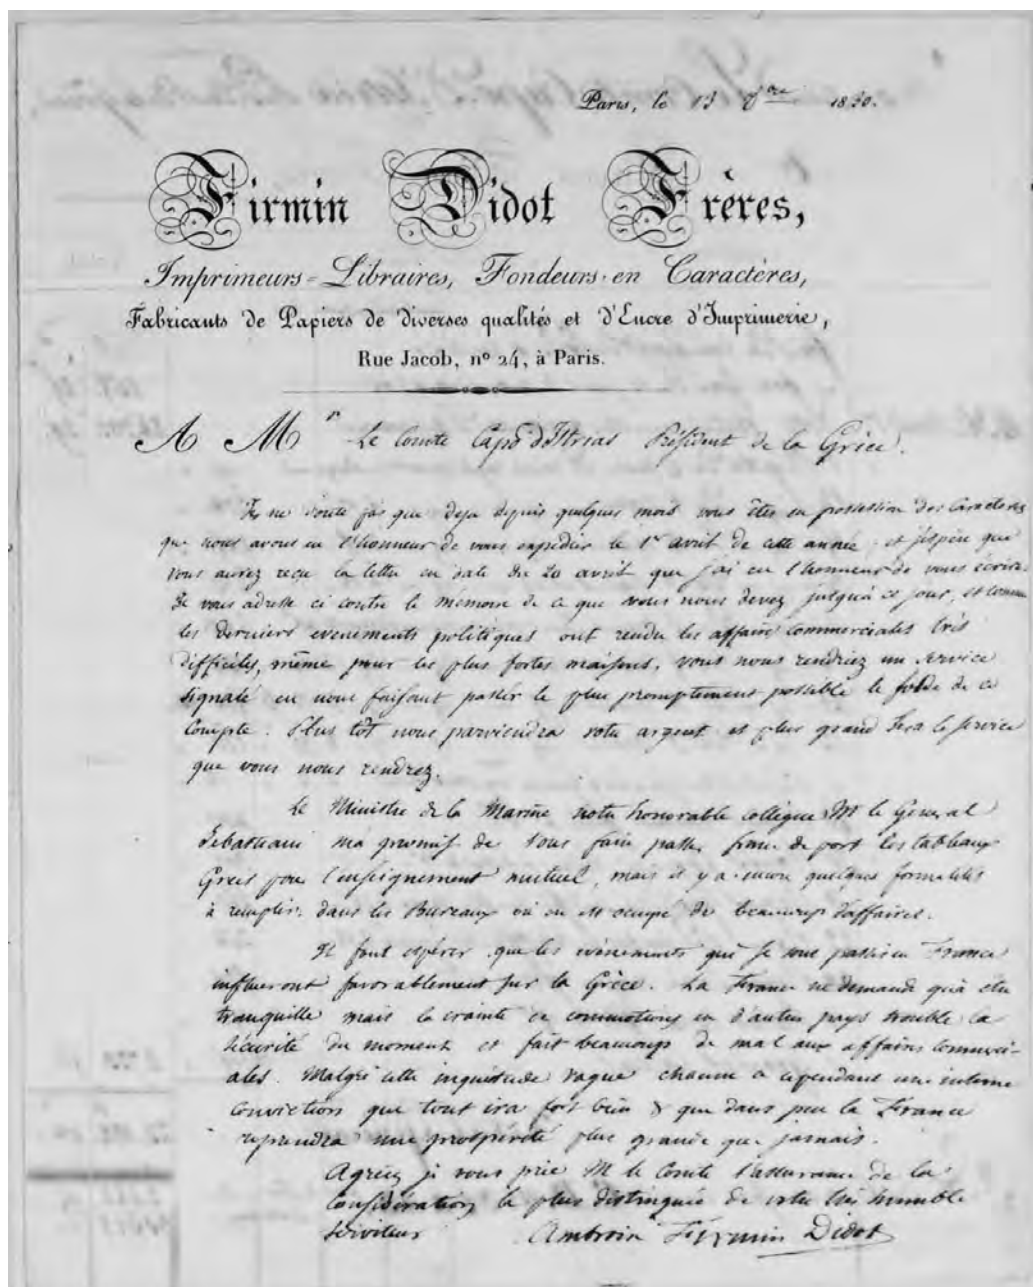 Paris, le 13 8bre 1830.
Firmin Didot Frères,
Imprimeurs-Libraires, Fondeurs en Caractères,
Fabricants de Papiers de diverses qualités et d'Encre d'Imprimerie,
Rue Jacob, nº 24, à Paris.
A Mr Le Comte Capo d'Istrias Président de la Grèce.
Je ne doute pas que deja depuis quelques mois vous êtes en possession des Caracteres
que nous avons eu l'honneur de vous expedier le 1er avril de cette année et j'espère que
vous aurez reçu la lettre en date du 20 avril que j'ai eu l'honneur de vous écrire.
Je vous adresse ci contre le memoire de ce que vous nous devez jusqu'à ce jour, et comme
les derniers evenements politiques ont rendu les affaires commerciales très
difficiles, même pour les plus fortes maisons, vous nous rendriez un service
signalé en nous faisant passer le plus promptement possible le solde de ce
compte. Plus tôt nous parviendra votre argent et plus grand sera le service
que vous nous rendrez.
Le Ministre de la Marine notre honorable collègue Mr le General
Sebastiani m'a promis de vous faire passer franc de port les tableaux
Grecs pour l'enseignement mutuel, mais il y a encore quelques formalités
à remplir dans les Bureaux où on est occupé de beaucoup d'affaires.
Il faut espérer que les evènements qui se sont passés en France
influeront favorablement sur la Grèce. La France ne demande qu'à être
tranquille mais la crainte de commotions en d'autres pays trouble la
sécurité du moment et fait beaucoup de mal aux affaires commerci-
ales. Malgré cette inquiétude vague chacun a cependant une intime
conviction que tout ira fort bien & que dans peu la France
reprendra une prospérité plus grande que jamais.
Agréez je vous prie M le Comte l'assurance de la
Considération la plus distinguée de votre très humble
serviteur Ambroise Firmin Didot